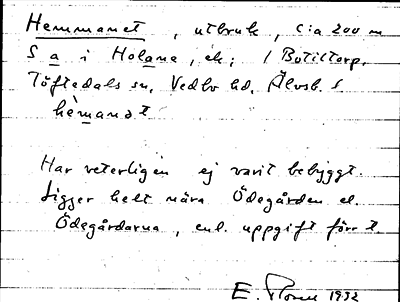 Hemmanet , utbruk, c:a 200 m
S a i Holane, ek; / Botiltorp.
Töftedals sn, Vedbo hd, Älvsb. l
hèmanət
Har veterligen ej varit bebyggt.
Ligger helt nära Ödegården el.
Ödegårdarna, enl. uppgift förr t.
E. 1932